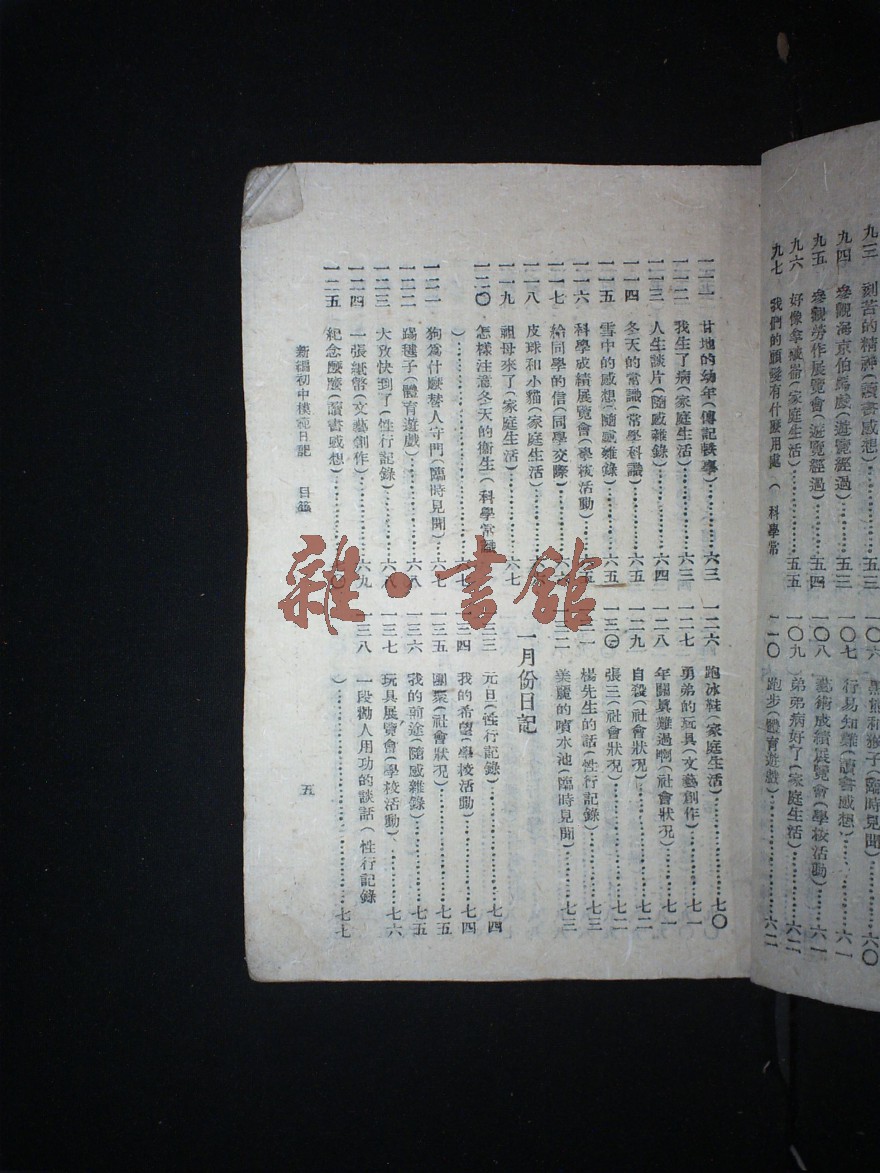 九三 刻苦的精神(讀書感想)⋯⋯五三
九四 參觀海京伯馬戲(遊覽經過)⋯⋯五三
九五 參觀勞作展覽會(遊覽經過)⋯⋯五四
九六 好像拿破崙(家庭生活)⋯⋯五五
九七 我們的頭髮有什麼用處(科學常
一〇六 黑熊和猴子(臨時見聞)⋯⋯六〇
一〇七 行易知難(讀書感想)⋯⋯六一
一〇八 藝術成績展覽會(學校活動)⋯⋯六一
一〇九 弟弟病好了(家庭生活)⋯⋯六二
一一〇 跑步(體育遊戲)⋯⋯六二
一一一 甘地的幼年(傳記軼事)⋯⋯六三
一一二 我生了病(家庭生活)⋯⋯六三
一一三 人生談片(隨感雜錄)⋯⋯六四
一一四 冬天的常識(常學科識)⋯⋯六五
一一五 雪中的感想(隨感雜錄)⋯⋯六五
一一六 科學成績展覽會(學校活動)⋯⋯五
一一七 給同學的信(同學交際)⋯⋯六
一一八 皮球和小貓(家庭生活)⋯⋯六
一一九 祖母來了(家庭生活)⋯⋯六七
一二〇 怎樣注意冬天的衞生(科學常識
)⋯⋯六七
一二一 狗爲什麼替人守門(臨時見聞)⋯⋯六七
一二二 踢毽子(體育遊戲)⋯⋯六八
一二三 大攷快到了(性行記錄)⋯⋯六八
一二四 一張紙幣(文藝創作)⋯⋯六九
一二五 紀念麼麼(讀書感想)⋯⋯〇
一二六 跑冰鞋(家庭生活)⋯⋯七〇
一二七 勇弟的玩具(文藝創作)⋯⋯七一
一二八 年關眞難過啊(社會狀况)⋯⋯七一
一二九 自殺(社會狀况)⋯⋯七二
一三〇 張三(社會狀况)⋯⋯七二
一三一 楊先生的話(性行記錄)⋯⋯七三
一三二 美麗的噴水池(臨時見聞)⋯⋯七三
一月份日記
一三三 元旦(性行記錄)⋯⋯七四
一三四 我的希望(學校活動)⋯⋯七四
一三五 團聚(社會狀况)⋯⋯七五
一三六 我的前途(隨感雜錄)⋯⋯七五
一三七 玩具展覽會(學校活動)⋯⋯七六
一三八 一段勸人用功的談話(性行記錄
⋯⋯七七
新編初中模範日記 目錄 五
雜·書館